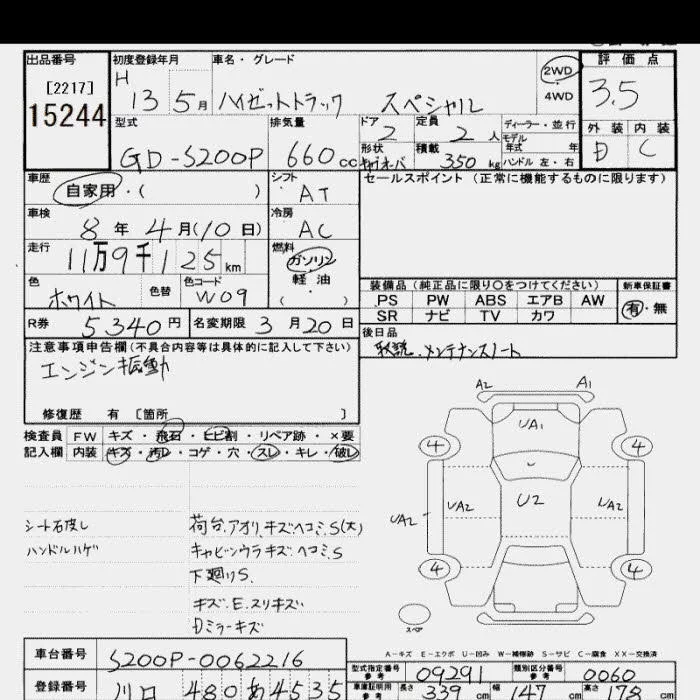 出品番号 初度登録年月 車名・グレード 評価点
[2217] 15244 H 13 5月 ハイゼットトラック スペシャル 2WD 4WD 3.5
型式 排気量 ドア 定員 ディーラー・並行 外装 内装
GD-S200P 660cc 2 2人 モデル年式 年 D C
形状 積載 350kg ハンドル 左・右
車歴 自家用・( ) シフト AT セールスポイント (正常に機能するものに限ります)
車検 8年4月(10日) 冷房 AC
走行 11万9千125km 燃料 ガソリン 軽油 ( )
色 ホワイト 色替 色コード W09
装備品(純正品に限り○をつけてください) 新車保証書
PS PW ABS エアB AW 有・無
SR ナビ TV カワ
R券 5340円 名変期限 3月20日
後日品
取説.メンテナンスノート
注意事項申告欄(不具合内容等は具体的に記入して下さい)
エンジン振動
修復歴 有 [箇所 ]
検査員 FW キズ・飛石・ヒビ割・リペア跡・×要
記入欄 内装 キズ・汚レ・コゲ・穴・スレ・キレ・破レ
シート右皮し 荷台.アオリ.キズヘコミ.S(大)
ハンドルハゲ キャビンウラキズヘコミ.S
下廻りS.
キズ.E.スリキズ
Dミラーキズ
A2 A1
UA1
4 4
UA2 UA2 U2 UA2
4 4
スペア
A-キズ E-エクボ U-凹み W-補修跡 S-サビ C-腐食 XX-交換済
車台番号 S200P-0062216
型式指定番号 参考 09291 類別区分番号 参考 0060
登録番号 川口 480 あ 4535
車庫証明用 参考 長さ 339cm 幅 147cm 高さ 178cm